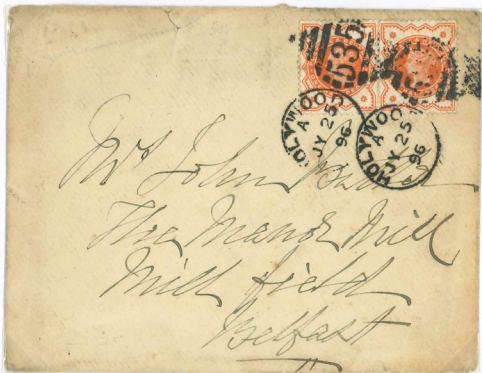 535
HOLYWOOD
A
JY 25
96
HOLYWOOD
A
JY 25
96
Mr John
The Manor Mill
Mill field
Belfast